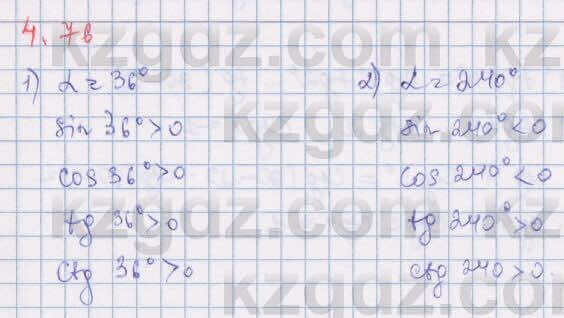 4.7в
1) α = 36°
sin 36° > 0
cos 36° > 0
tg 36° > 0
ctg 36° > 0
2) α = 240°
sin 240° < 0
cos 240° < 0
tg 240° > 0
ctg 240 > 0
kzgdz.com